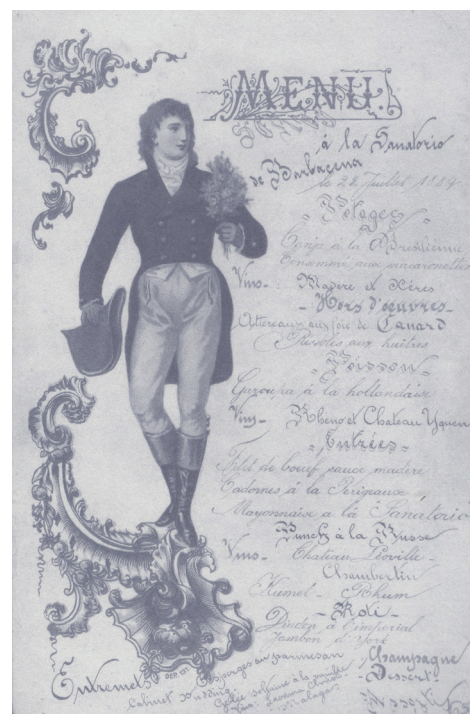 MENU.
à la Sanatorio
de Barbacena
le 22 Juillet 1889
Potages
Canja à la Brésilienne
Consommé aux macaronettes
Vins - Madère et Xérès
- Hors d'oeuvres -
Attereaux aux foie de Canard
aux huitres
Poisson
Garoupa à la hollandaise
Vins - Rheno et Chateau Yquem
Entrées -
Filet de boeuf sauce madère
à la Perigueux
Mayonnaise a la Sanatorio
Punch à la Russe
Vins - Chateau Léoville -
Chambertin
Kumel - Rhum
- Roti -
Dinden à l'imperial
Jambon d'York
Entremets
Asperges au parmesan
Champagne
Cabinet Pudding
Gelée
à la vanille
- Dessert -